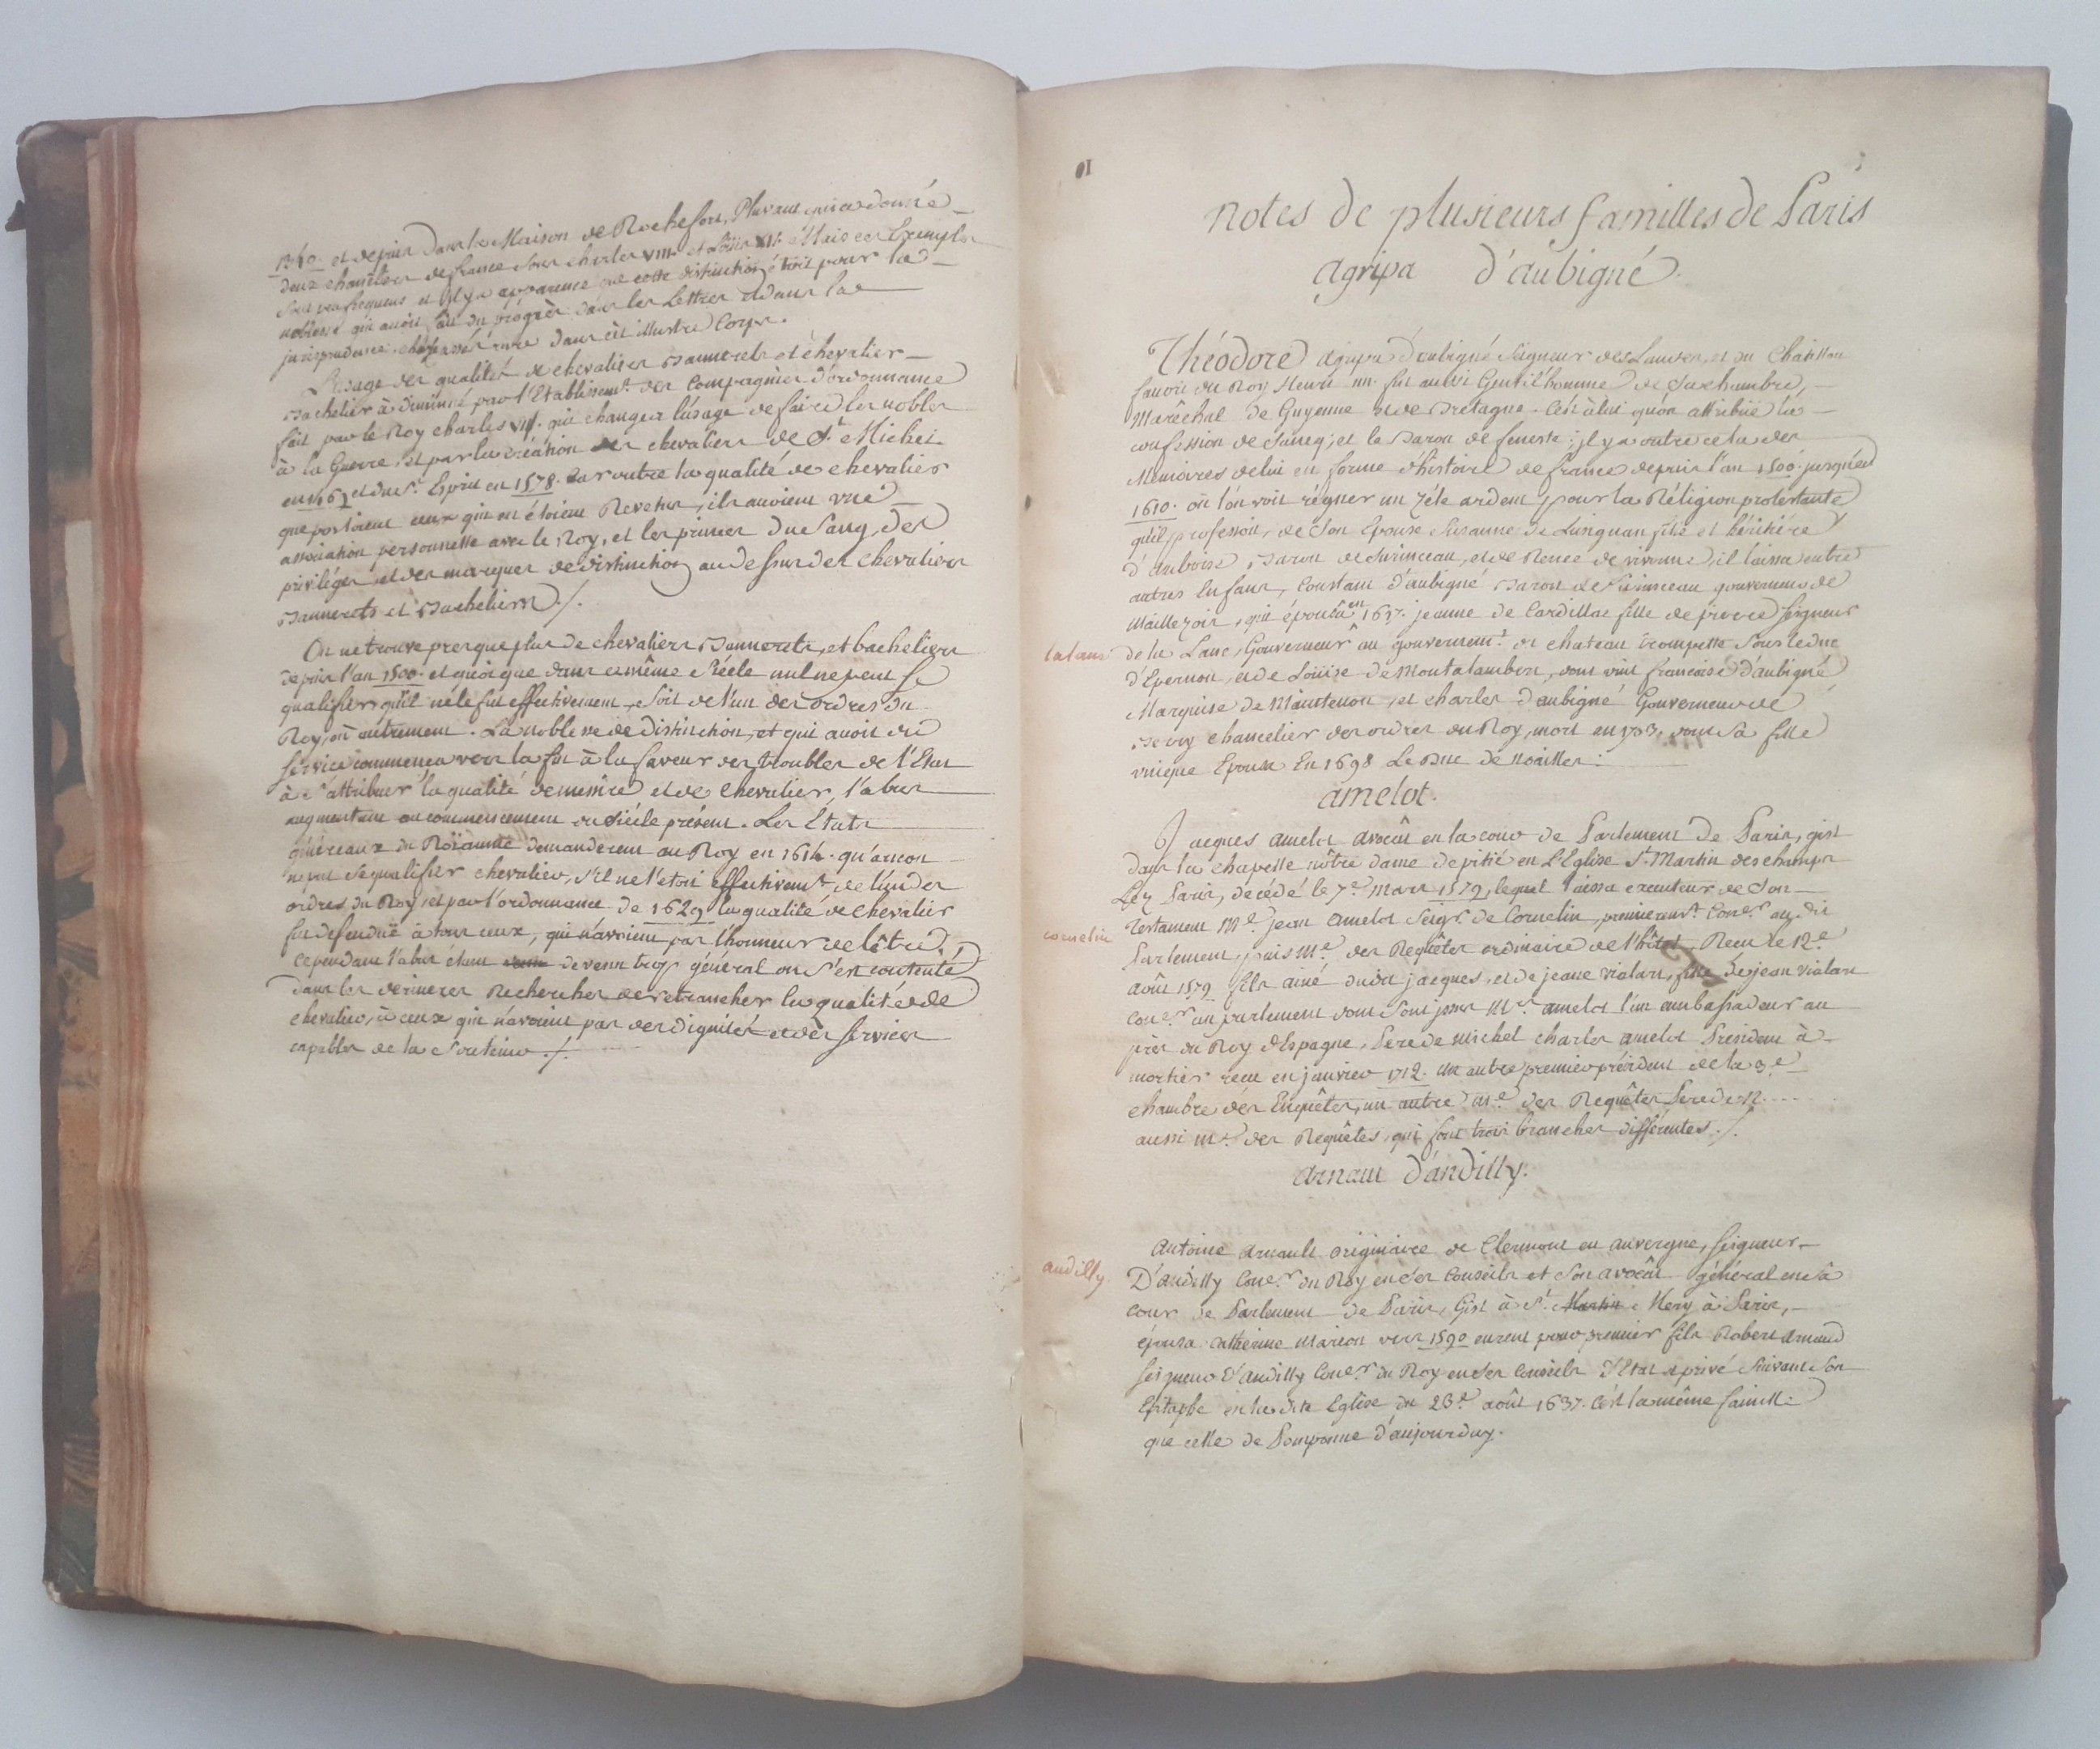 1460 et depuis dans la Maison de Rochefort, Pluvaut qui a donné
deux chanceliers de france sous charles VIII. et Loüis XII. Mais ces Exemples
sont peu frequens et il y a apparence que cette distinction étoit pour la
noblesse qui avoit fait du progrès dans les Lettres et dans la
jurisprudence dans cét illustre Corps.
L'usage des qualités de chevaliers Bannerets et chevalier
Bachelier à diminué par l'Etablissem.t des Compagnies d'ordonnance
fait par le Roy charles VII. qui changea l'usage de faire les nobles
à la Guerre, et par la création des chevaliers de S.t Michel
en 1469 et du S.t Esprit en 1578. Car outre la qualité de chevalier
que portoient ceux qui en étoient Revetus, ils avoient une
association personnelle avec le Roy, et les princes du Sang, des
privileges et des marques de distinction au dessus des Chevaliers
Bannerets et Bacheliers ./.
On ne trouve presque plus de chevaliers Bannerets, et bacheliers
depuis l'an 1500. et quoique dans ce même siécle nul ne peut se
qualifier qu'il ne le fut effectivement, soit de l'un des ordres du
Roy, où autrement. La noblesse de distinction, et qui avoit du
service commença vers la fin à la faveur des troubles de l'Etat
à s'attribuer la qualité de messire et de Chevalier, l'abus
augmentant au commencement du siécle présent. Les Etats
généraux du Roïaume demanderent au Roy en 1614. qu'aucun
ne put se qualifier chevalier, s'il ne l'étoit effectivem.t de l'un des
ordres du Roy, et par l'ordonnance de 1629 la qualité de Chevalier
fut defenduë à tous ceux, qui n'avoient pas l'honneur de l'être,
Cependant l'abus étant devenu trop général on s'est contenté
dans les dernieres Recherches de retrancher la qualité de
chevalier, à ceux qui n'avoient pas des dignités et des services
capables de la soutenir ./.
notes de plusieurs familles de Paris
agripa d'aubigné
Théodore agripa d'aubigné Seigneur des Landes, et du Chaillou
favori du Roy Henri IIII. fut aussi Gentil'homme de sa chambre,
Maréchal de Guyenne et de Bretagne. C'est à lui qu'on attribüe la
confession de Sancy, et le Baron de feneste; il y a outre cela des
Memoires de lui en forme d'histoire de france depuis l'an 1500. jusqu'en
1610. où l'on voit régner un zéle ardent pour la Réligion protéstante
qu'il professoit, de Son Epouse Susanne de Lusignan fille et héritiére
d'Amboise Baron de Surinceau, et de Renée de vivonne, il laissa entre
autres Enfans, Constant d'aubigné Baron de Surinceau gouverneur de
Maillezois, qui épousa en 1637. jeanne de Cardillac fille de pierre Seigneur
lalane
de la Lane, Gouverneur au gouvernem.t du chateau trompette Sous le duc
d'Epernon, et de Loüise de Montalambert, dont vint francoise d'aubigné
Marquise de Maintenon, et charles d'aubigné Gouverneur de
Berry chancelier des ordres du Roy, mort en 1703, dont la fille
unique Epousa En 1698 Le Duc de Noailles.
amelot.
Jacques amelot avocât en la cour de Parlement de Paris, gist
dans la chapelle nôtre dame de pitié en l'Eglise S.t Martin des champs
Léz Paris, decédé le 7.e Mars 1579, lequel laissa executeur de Son
cornelin
Testament M.e Jean amelot Seig.r de Cornelin, premierem.t Con.er au dit
Parlement, puis M.e des Requêtes ordinaire de l'hôtel Recu le 12.e
août 1579 fils ainé dudit jacques, et de jeane vialart, fille de jean vialart
Con.er au parlement dont sont issus M.rs amelot l'un ambassadeur au
près du Roy d'Espagne, Pere de Michel charles amelot President à
mortier recu en janvier 1712. un autre premier président de la 3.e
chambre des Enquêtes, un autre M.e des Requêtes Pere de N....
aussi M.e des Requêtes, qui font trois branches différentes ./.
arnaut d'andilly.
Antoine arnault originaire de Clermont en auvergne, Seigneur
andilly
D'andilly Con.er du Roy en ses Conseils et Son avocât général en sa
cour de Parlement de Paris, Gist à S.t Martin Mery à Paris,
épousa Catherine Marion vers 1590 eurent pour premier fils Robert arnaud
Seigneur d'andilly Con.er du Roy en ses Conseils d'Etat et privé suivant Son
Epitaphe en la dite Eglise du 23.e août 1637. C'ést la même famille
que celle de Pomponne d'aujourduy.